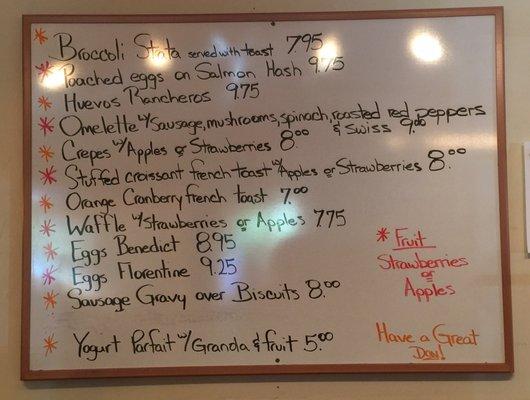 Broccoli Strata served with toast 7.95
Poached eggs on Salmon Hash 9.75
Huevos Rancheros 9.75
Omelette w/Sausage, mushrooms, spinach, roasted red peppers
& Swiss 9.00
Crepes w/Apples or Strawberries 8.00
Stuffed croissant french toast w/Apples or Strawberries 8.00
Orange Cranberry french toast 7.00
Waffle w/strawberries or Apples 7.75
Eggs Benedict 8.95
* Fruit
Eggs Florentine 9.25
Strawberries
or
Apples
Sausage Gravy over Biscuits 8.00
Yogurt Parfait w/Granola & fruit 5.00
Have a Great
Day!